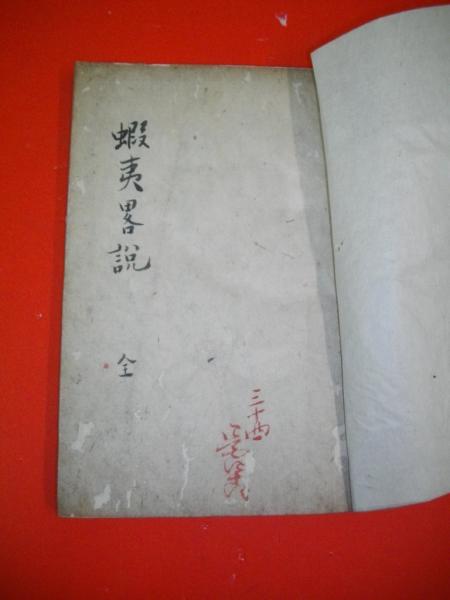 蝦夷畧說
全
三十四